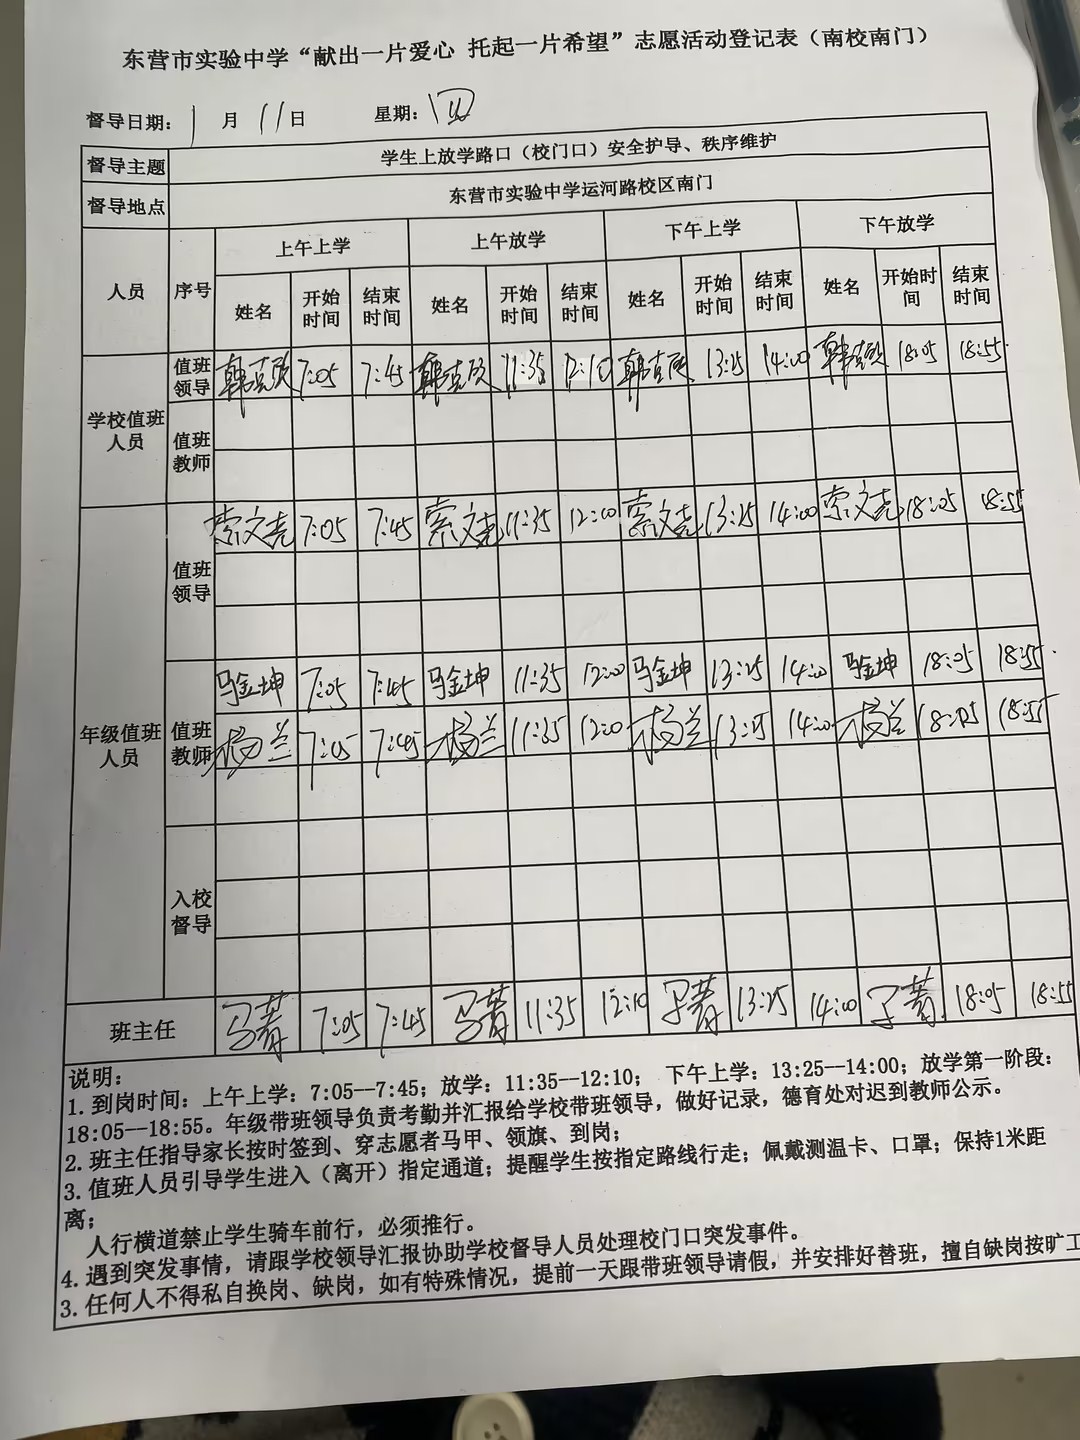 东营市实验中学“献出一片爱心 托起一片希望”志愿活动登记表（南校南门）
督导日期： 1 月 11 日 星期：四
督导主题 学生上放学路口（校门口）安全护导、秩序维护
督导地点 东营市实验中学运河路校区南门
人员 序号 上午上学 上午放学 下午上学 下午放学
姓名 开始时间 结束时间 姓名 开始时间 结束时间 姓名 开始时间 结束时间 姓名 开始时间 结束时间
学校值班人员 值班领导 7:05 7:45 11:35 12:10 13:25 14:00 18:05 18:55
值班教师
年级值班人员 值班领导 索文尧 7:05 7:45 索文尧 11:35 12:00 索文尧 13:25 14:00 索文尧 18:05 18:55
值班教师 马金坤 7:05 7:45 马金坤 11:35 12:00 马金坤 13:25 14:00 马金坤 18:05 18:55
杨兰 7:05 7:45 杨兰 11:35 12:00 杨兰 13:25 14:00 杨兰 18:05 18:55
入校督导
班主任 马菁 7:05 7:45 马菁 11:35 12:10 马菁 13:25 14:00 马菁 18:05 18:55
说明：
1. 到岗时间：上午上学：7:05--7:45；放学：11:35--12:10； 下午上学：13:25--14:00；放学第一阶段：
18:05--18:55。年级带班领导负责考勤并汇报给学校带班领导，做好记录，德育处对迟到教师公示。
2. 班主任指导家长按时签到、穿志愿者马甲、领旗、到岗；
3. 值班人员引导学生进入（离开）指定通道；提醒学生按指定路线行走；佩戴测温卡、口罩；保持1米距
离；
人行横道禁止学生骑车前行，必须推行。
4. 遇到突发事情，请跟学校领导汇报协助学校督导人员处理校门口突发事件。
3. 任何人不得私自换岗、缺岗，如有特殊情况，提前一天跟带班领导请假，并安排好替班，擅自缺岗按旷工